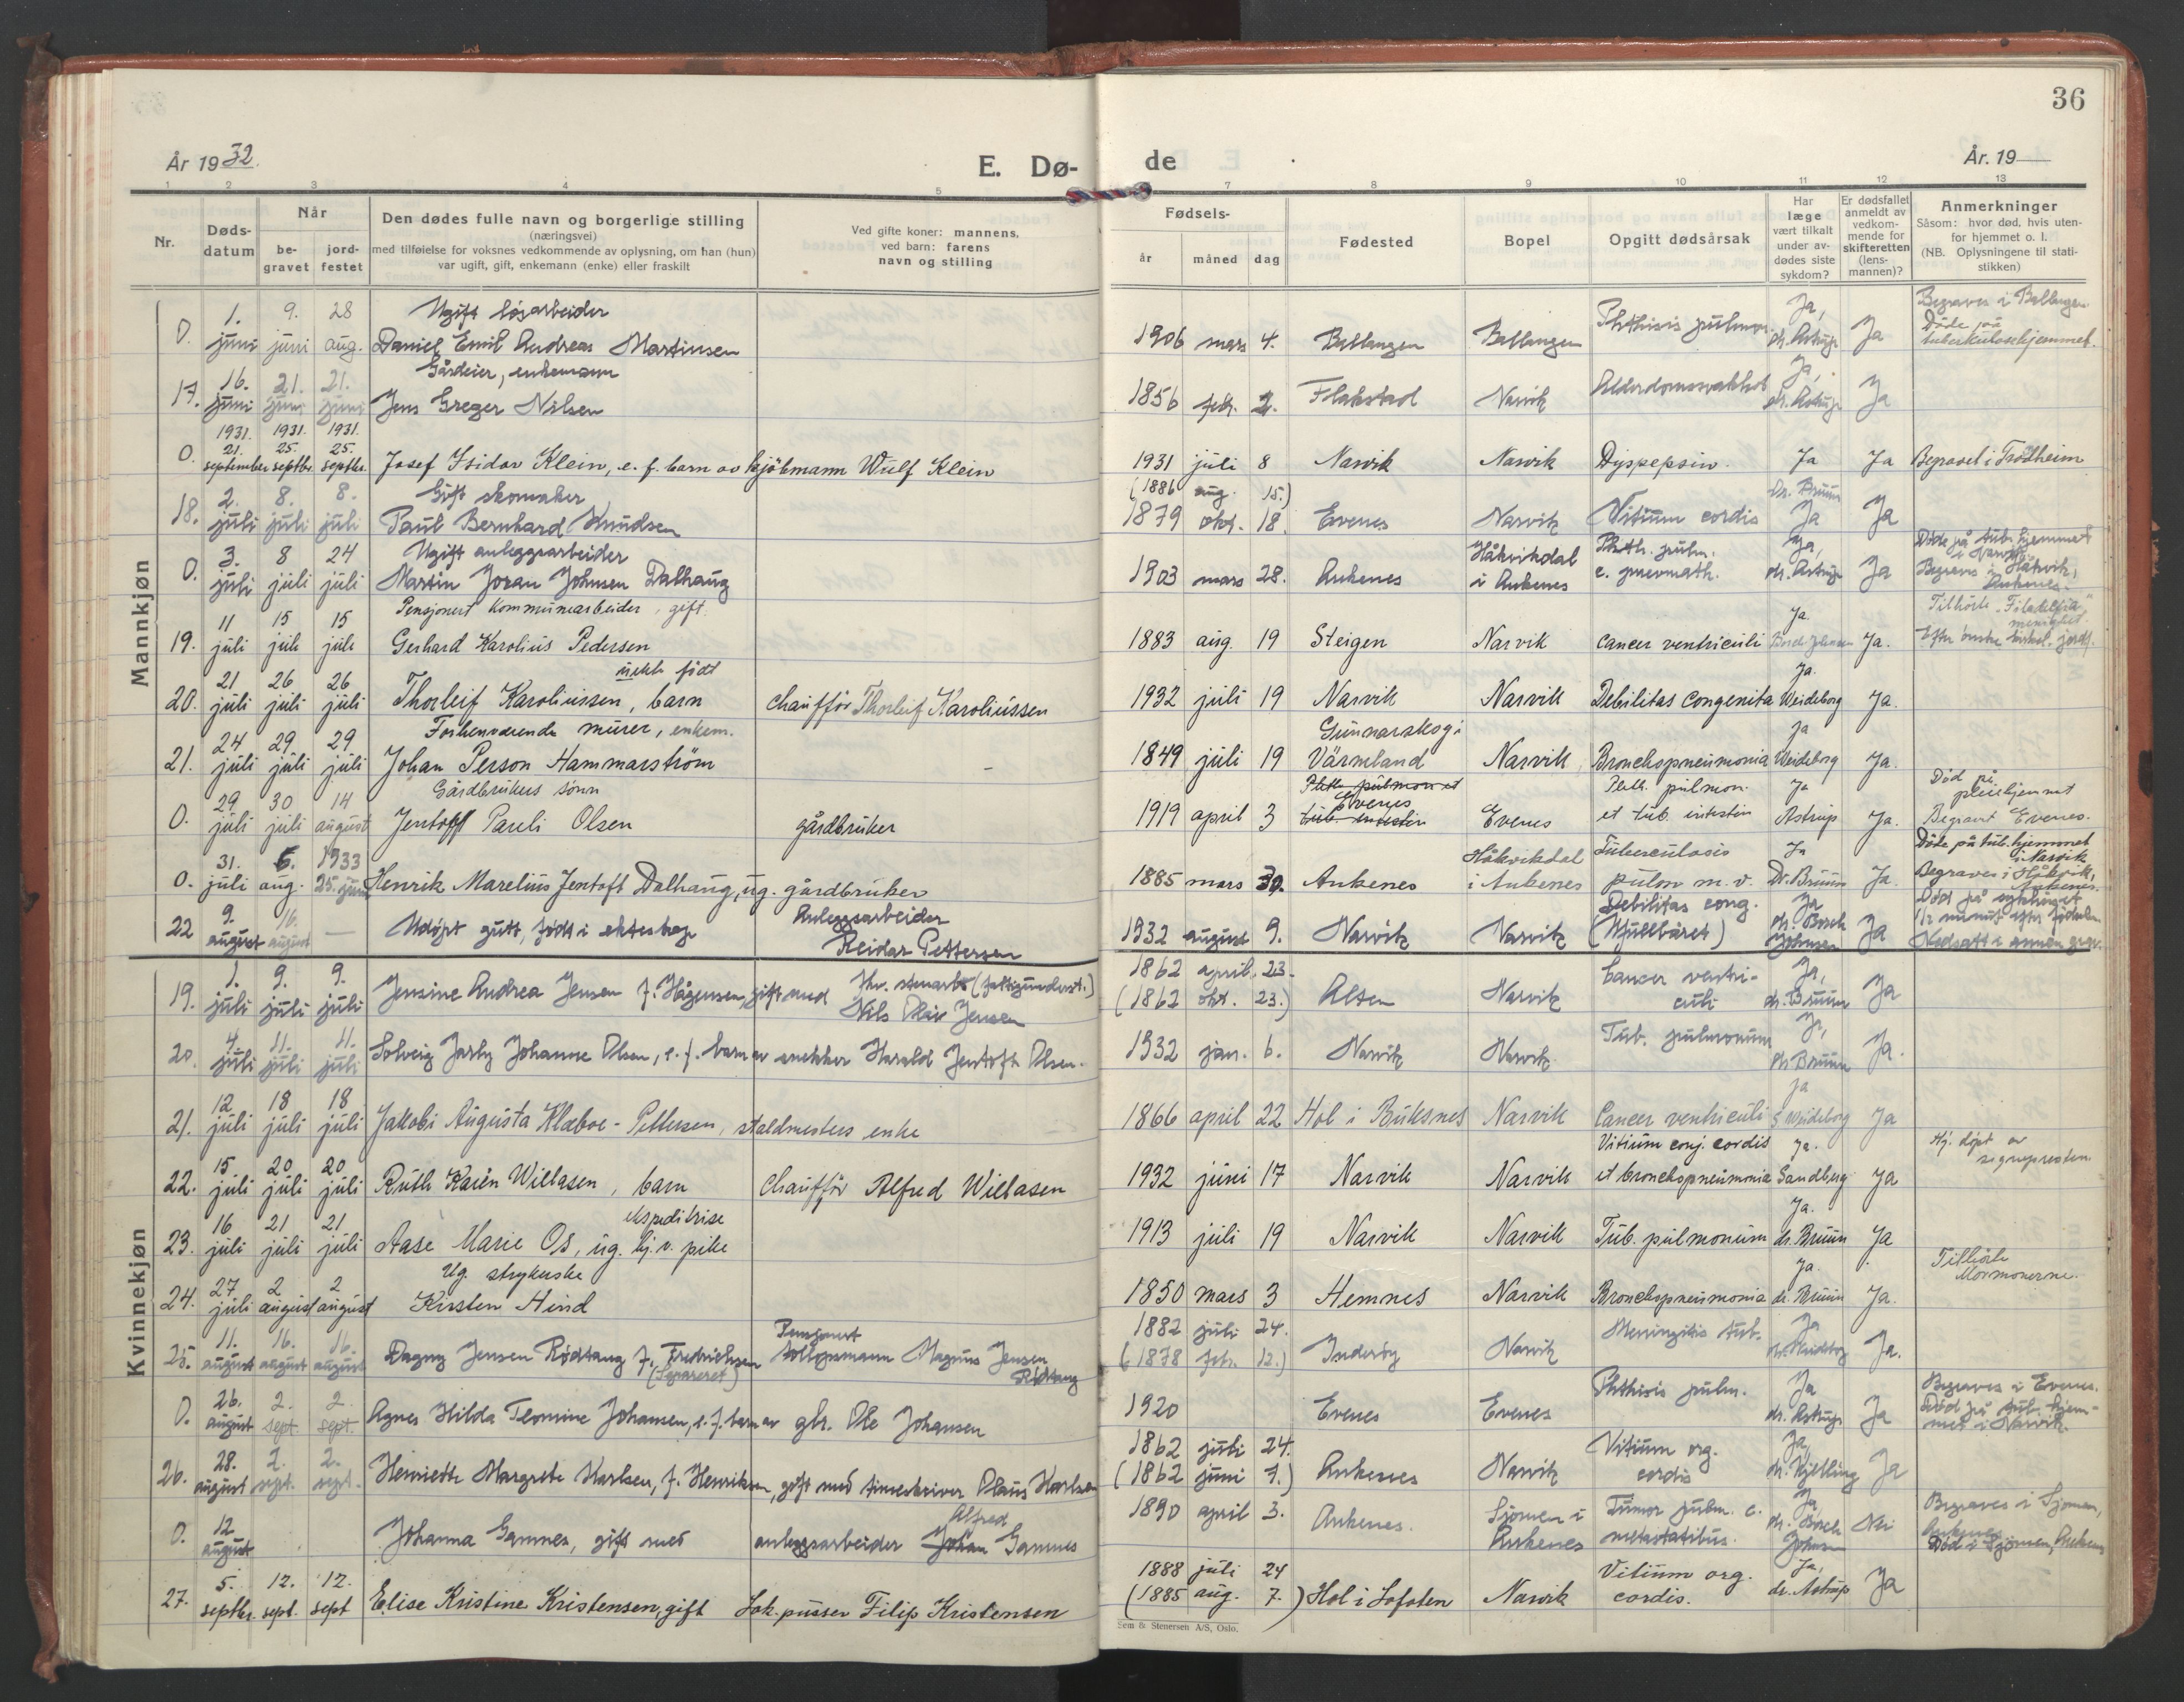 36
År 1932.
E. Dø-
de
År. 19
1 2 3 4 5
7 8 9 10 11 12 13
Nr.
Døds-
datum
Når
be-
gravet
jord-
festet
Den dødes fulle navn og borgerlige stilling
(næringsvei)
med tilføielse for voksnes vedkommende av oplysning, om han (hun)
var ugift, gift, enkemann (enke) eller fraskilt
Ved gifte koner: mannens,
ved barn: farens
navn og stilling
Fødsels-
år måned dag
Fødested
Bopel
Opgitt dødsårsak
Har
læge
vært tilkalt
under av-
dødes siste
sykdom?
Er dødsfallet
anmeldt av
vedkom-
mende for
skifteretten
(lens-
mannen)?
Anmerkninger
Såsom: hvor død, hvis uten-
for hjemmet o. l.
(NB. Oplysningene til stati-
stikken)
Mannkjøn
1. 9. 28 Ugift løsarbeider Ja, Begraves i Ballangen
0. juni juni aug. Daniel Emil Andreas Martinsen 1906 mars 4. Ballangen Ballangen Phthisis pulmon. dr. Astrup Ja Døde på tuberkulosehjemmet.
16. 21. 21. Gårdeier, enkemann Ja,
17. juni juni juni Jens Greger Nilsen 1856 febr. 2. Flakstad Narvik Alderdomssvakhet dr. Astrup Ja
1931. 1931. 1931.
21. 25. 25.
0. september septbr. septbr. Josef Isidor Klein, e. f. barn av kjøbmann Wulf Klein 1931 juli 8 Narvik Narvik Dyspepsin. Ja Ja Begravet i Trødheim
2. 8. 8. Gift skomaker (1886 aug. 15.) Dr. Bruun
18. juli juli juli Paul Bernhard Knudsen 1879 okt. 18. Evenes Narvik Vitium cordis Ja Ja
3. 8 24 Ugift anleggsarbeider Håkvikdal Phth. pulm. Ja, Døde på tub. hjemmet i Narvik
0. juli juli juli Martin Johan Johnsen Dalhaug 1903 mars 28. Ankenes i Ankenes c. pneumoth. dr. Astrup Ja Begraves i Håkvik, Ankenes.
11 15 15 Pensjonert Kommunearbeider, gift. Ja. Tilhørte "Filadelfia" menighet.
19. juli juli juli Gerhard Karolius Pedersen 1883 aug. 19 Steigen Narvik Cancer ventriculi Ja.
21 26 26 ekte født Ja.
20. juli juli juli Thorleif Karoliussen, barn Chauffør Thorleif Karoliussen 1932 juli 19 Narvik Narvik Debilitas congenita Weideborg Ja.
24 29 29 Forhenværende murer, enkem. Gunnarskog i Ja
21. juli juli juli Johan Person Hammarström - 1849 juli 19 Värmland Narvik Bronchopneumonia Weideborg Ja.
29 30 14 Gårdbrukers sønn Phth. pulmon et Phth. pulmon. Ja Død på pleiehjemmet
0. juli juli august Jentoft Pareli Olsen gårdbruker 1919 april 3 Evenes tub. intestin Evenes et tub. intestin Astrup Ja. Begravet Evenes.
31. 6. 1933 Håkvikdal Tuberculosis Ja Døde på tub. hjemmet i Narvik
0. juli aug. 25. juni Henrik Marelius Jentoft Dalhaug, ug. gårdbruker 1885 mars 30. Ankenes i Ankenes pulon m. v. Dr. Bruun Ja. Begraves i Håkvik, Ankenes.
9. 16. Anleggsarbeider Debilitas cong. Ja Død på sykehuset
22 august august — Udøpt gutt, født i ekteskap Reidar Pettersen 1932 august 9. Narvik Narvik (Ufullbåret) dr. Borch Johnsen Ja 1/2 minut efter fødselen Nedsatt i annen grav.
Kvinnekjøn
1. 9. 9. Fhv. stuearb. (fattigunderst.) 1862 april 23. Cancer ventri- Ja,
19. juli juli juli Jensine Andrea Jensen f. Hågensen, gift med Nils Olai Jensen (1862 okt. 23.) Alten Narvik culi dr. Bruun Ja
4. 11. 11. Ja,
20. juli juli juli Solveig Jarby Johanne Olsen, e. f. barn av snekker Harald Jentoft Olsen. 1932 jan. 6. Narvik Narvik. Tub. pulmonum dr. Bruun Ja.
12 18 18 Ja
21. juli juli juli Jakobi Augusta Klæboe-Pettersen, staldmesters enke 1866 april 22 Hol i Buksnes Narvik Cancer ventriculi S. Weideborg Ja
15 20 20 Vitium conj. cordis Ja. Hj. døpt av sognepresten.
22. juli juli juli Ruth Karen Willasen, barn Chauffør Alfred Willasen 1932 juni 17 Narvik Narvik et bronchopneumonia Sandberg Ja
16 21 21 ekspeditrise Ja.
23. juli juli juli Aase Marie Os, ug. hj. v. pike 1913 juli 19 Narvik Narvik Tub. pulmonum dr. Bruun Ja
27 2 2 Ug. strykerske Ja. Tilhørte Mormonerne.
24. juli august august Kirsten Hind 1850 mars 3 Hemnes Narvik Bronchopneumonia dr. Bruun Ja.
11. 16. 16. Pensjonert 1882 juli 24. Ja
25. august august august Dagny Jensen Rødtang f. Fredriksen (Separeret) Magnus Jensen Rødtang (1878 febr. 12.) Inderøy Narvik Meningitis tub. dr. Weideborg Ja.
26. 2. 2. Ja Begraves i Evenes.
0. august sept. sept. Agnes Hilda Teomine Johansen, e. f. barn av gbr. Ole Johansen 1920 Evenes Evenes Phthisis pulm. dr. Astrup Ja Død på tub. hjem- met i Narvik.
28. 2. 2. 1862 juli 24. Vitium org. Ja,
26. august sept. sept. Henriette Margrete Karlsen, f. Henriksen, gift med timeskriver Olaus Karlsen (1862 juni 7.) Ankenes Narvik cordis dr. Kjelling Ja
12 Alfred 1890 april 3. Sjomen i Tumor pulm. c. Ja Begraves i Sjomen, Ankenes
0. august Johanna Gamnes, gift med anleggsarbeider Johan Gamnes Ankenes. Ankenes metastatibus. dr. Borch Johnsen Nei Død i Sjomen, Ankenes
5. 12. 12. 1888 juli 24 Vitium org. Ja,
27. septbr. sept. sept Elise Kristine Kristensen, gift Lok. pusser Filip Kristensen (1885 aug. 7.) Hol i Lofoten Narvik cordis. dr. Astrup Ja
Sem & Stenersen A/S, Oslo.